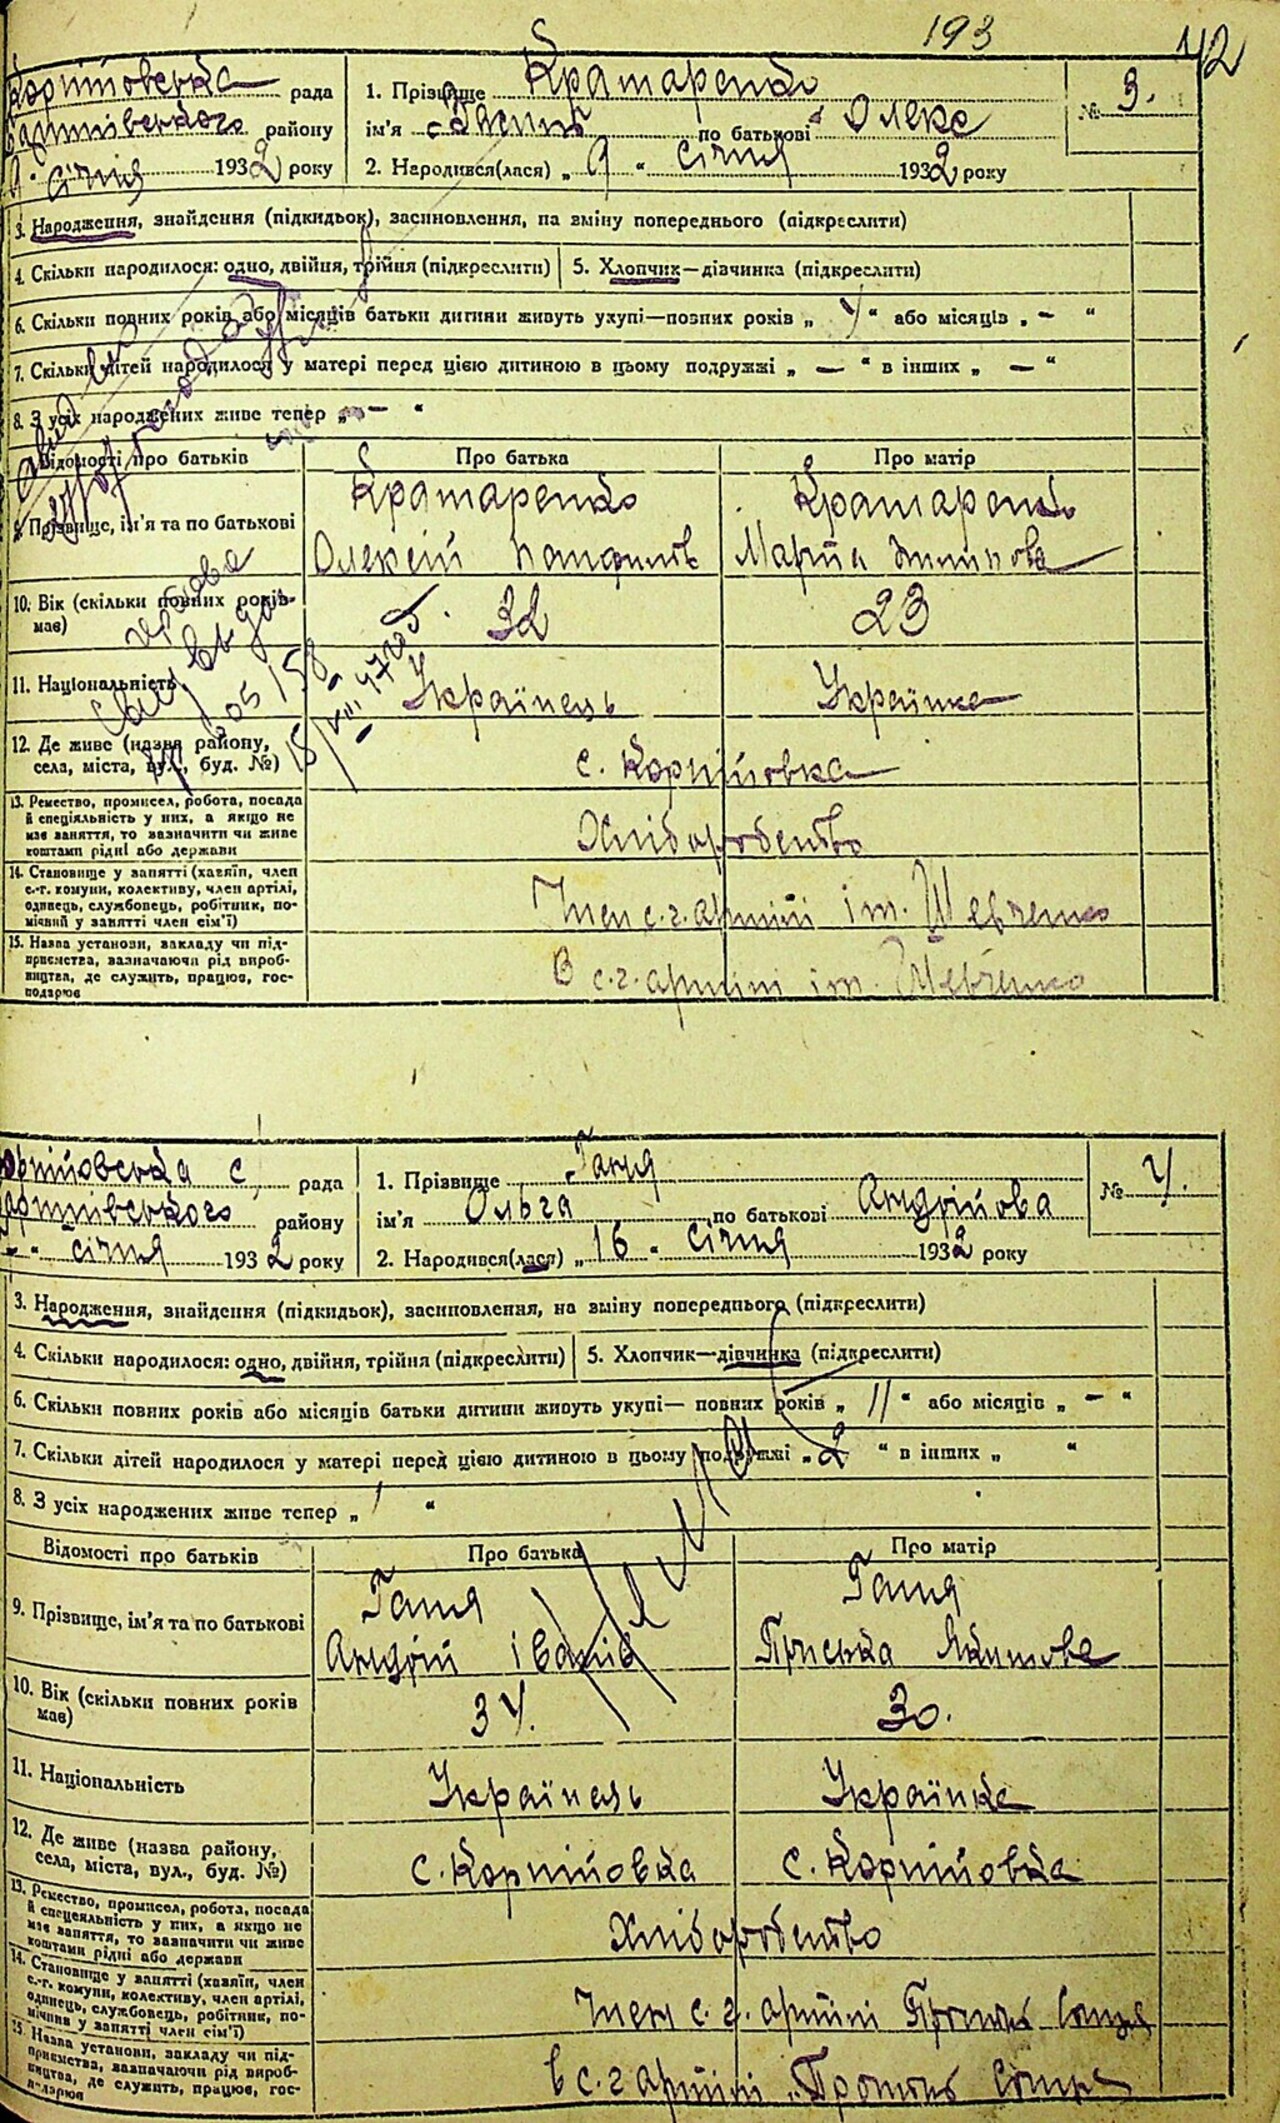 193
рада
1. Прізвище Кратаренко
№ 3.
району
ім'я по батькові Олекс
січня 1932 року
2. Народився(лася) „ 9 “ січня 1932 року
3. Народження, знайдення (підкидьок), засиновлення, на зміну попереднього (підкреслити)
4. Скільки народилося: одно, двійня, трійня (підкреслити)
5. Хлопчик—дівчинка (підкреслити)
6. Скільки повних років або місяців батьки дитини живуть укупі—повних років „ “ або місяців „ — “
7. Скільки дітей народилося у матері перед цією дитиною в цьому подружжі „ — “ в інших „ — “
8. З усіх народжених живе тепер „ — “
Відомості про батьків
Про батька
Про матір
9. Прізвище, ім'я та по батькові
Кратаренко
Олексій Панфилів
Кратаренко
Марія
10. Вік (скільки повних років має)
32
23
11. Національність
Українець
Українка
12. Де живе (назва району,
села, міста, вул., буд. №)
с. Корнійовка
13. Ремество, промисел, робота, посада
й спеціяльність у них, а якщо не
має заняття, то зазначити чи живе
коштами рідні або держави
Хліборобство
14. Становище у занятті (хазяїн, член
с.-г. комуни, колективу, член артілі,
одинець, службовець, робітник, по-
мічний у занятті член сім'ї)
Член с.г. артілі ім. Шевченко
15. Назва установи, закладу чи під-
приємства, зазначаючи рід вироб-
ництва, де служить, працює, гос-
подарює
В с.г. артілі ім. Шевченко
рада
1. Прізвище Ганя
№ 4.
району
ім'я Ольга по батькові Андрійова
січня 1932 року
2. Народився(лася) „ 16 “ січня 1932 року
3. Народження, знайдення (підкидьок), засиновлення, на зміну попереднього (підкреслити)
4. Скільки народилося: одно, двійня, трійня (підкреслити)
5. Хлопчик—дівчинка (підкреслити)
6. Скільки повних років або місяців батьки дитини живуть укупі— повних років „ 11 “ або місяців „ — “
7. Скільки дітей народилося у матері перед цією дитиною в цьому подружжі „ 2 “ в інших „ “
8. З усіх народжених живе тепер „ 1 “
Відомості про батьків
Про батька
Про матір
9. Прізвище, ім'я та по батькові
Ганя
Андрій Іванів
Ганя
Приська Якимова
10. Вік (скільки повних років
має)
34.
30.
11. Національність
Українець
Українка
12. Де живе (назва району,
села, міста, вул., буд. №)
с. Корнійовка
с. Корнійовка
13. Ремество, промисел, робота, посада
й спеціяльність у них, а якщо не
має заняття, то зазначити чи живе
коштами рідні або держави
Хліборобство
14. Становище у занятті (хазяїн, член
с.-г. комуни, колективу, член артілі,
одинець, службовець, робітник, по-
мічний у занятті член сім'ї)
Член с.г. артілі Промінь Сонця
15. Назва установи, закладу чи під-
приємства, зазначаючи рід вироб-
ництва, де служить, працює, гос-
подарює
в с.г артілі „Промінь Сонця